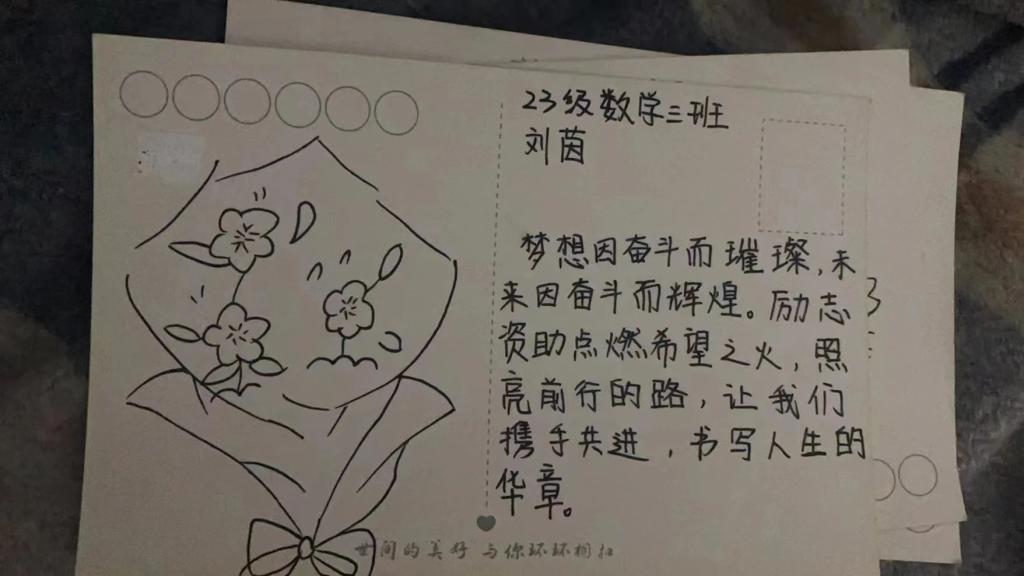 23级数学三班
刘茵
梦想因奋斗而璀璨，未
来因奋斗而辉煌。励志
资助点燃希望之火，照
亮前行的路，让我们
携手共进，书写人生的
华章。
世间的美好 与你环环相扣
3